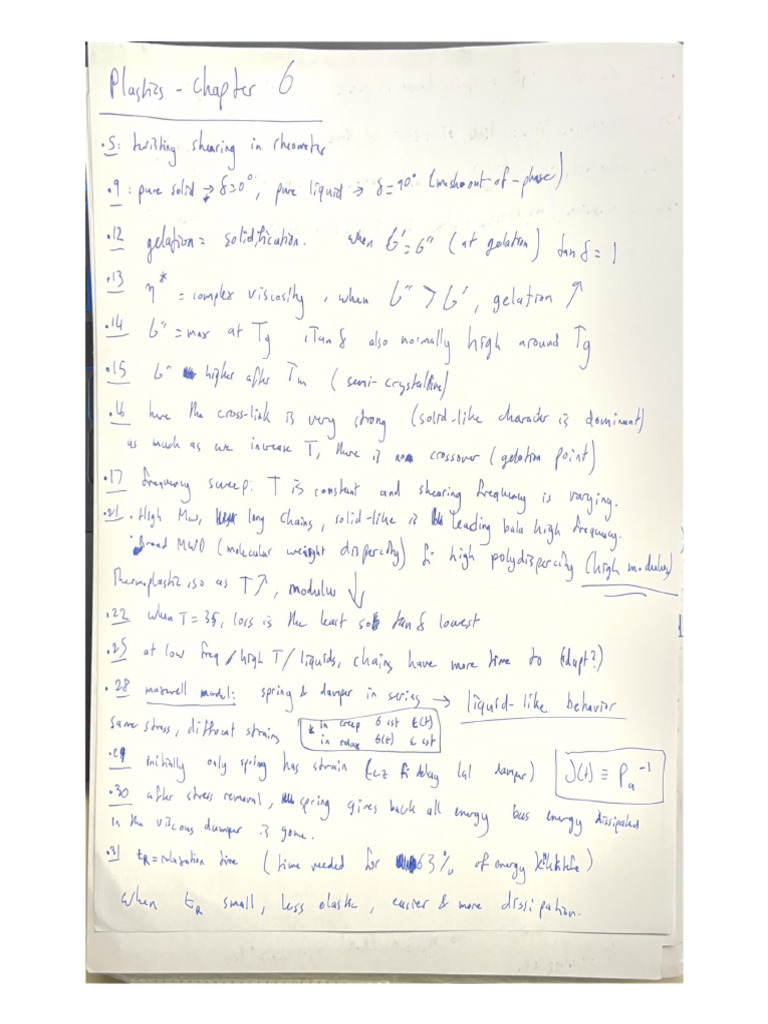 Plastics - Chapter 6
.5: twisting shearing in rheometer
.9: pure solid → δ=0°, pure liquid → δ=90° out-of-phase)
.12 gelation = solidification. when G'=G'' (at gelation) tan δ = 1
.13 η* = complex viscosity, when G'' > G', gelation ↑
.14 G'' = max at Tg, Tan δ also normally high around Tg
.15 G'' higher after Tm (semi-crystalline)
.16 here the cross-link is very strong (solid-like character is dominant)
as much as we increase T, there is no crossover (gelation point)
.17 frequency sweep: T is constant and shearing frequency is varying.
.21 . High Mw, long chains, solid-like is leading bala high frequency.
. Broad MWD (molecular weight dispercity) fi high polydispercity (high modulus)
Thermoplastic, so as T↑, modulus ↓
.22 when T=35, loss is the least so tan δ lowest
.25 at low freq/high T/liquids, chains have more time to (adapt?)
.28 maxwell model: spring & damper in series → liquid-like behavior
same stress, different strains
* in creep σ cst ε(t)
in relax σ(t) ε cst
.29 initially only spring has strain (cz fi delay lal damper)
J(t) ≡ Pa⁻¹
.30 after stress removal, spring gives back all energy bas energy dissipated
in the viscous dumper is gone.
.31 tR = relaxation time (time needed for 63% of energy)
when tR small, less elastic, easier & more dissipation.